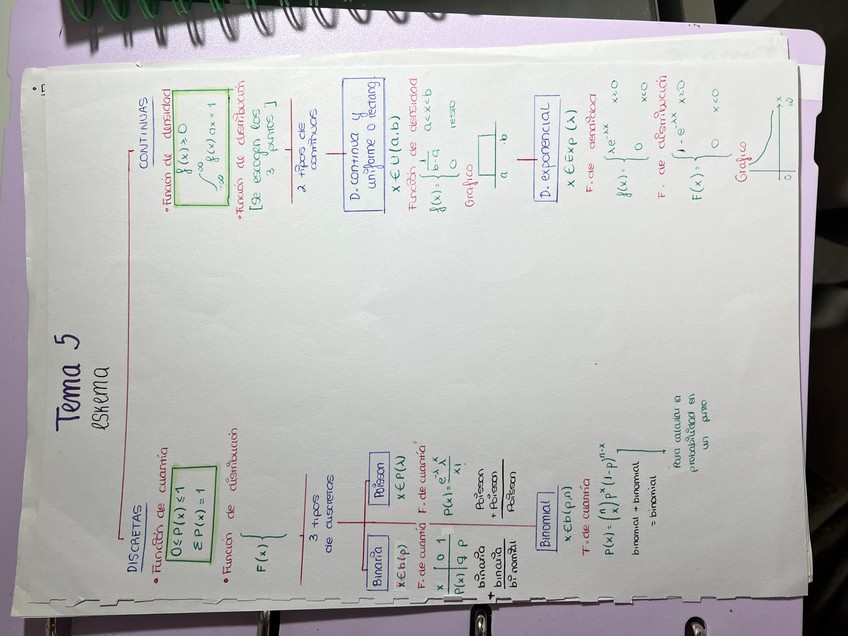 Tema 5
eskema
DISCRETAS
• Función de cuantía
0 ≤ P(x) ≤ 1
Σ P(x) = 1
• Función de distribución
F(x) {
3 tipos
de discretas
Binaria
x ∈ b(p)
F. de cuantía
x | 0 1
P(x) | q p
binaria
+ binaria
binomial
Poisson
x ∈ P(λ)
F. de cuantía
P(x) = e^-λ λ^x / x!
Poisson
+ Poisson
Poisson
Binomial
x ∈ b(p,n)
F. de cuantía
P(x) = (n x) p^x (1-p)^n-x
binomial + binomial
= binomial
Para calcular la
probabilidad en
un punto
CONTINUAS
• Función de densidad
f(x) ≥ 0
∫ -∞ ∞ f(x) dx = 1
• Función de distribución
[Se escogen los
3 puntos]
2 tipos de
continuas
D. continua y
uniforme o rectang
x ∈ U(a,b)
Función de densidad
f(x) = { 1/b-a a<x<b
0 resto
Gráfico
a b
D. exponencial
x ∈ Exp (λ)
F. de densidad
f(x) = { λe^-λx x>0
0 x<0
F. de distribución
F(x) = { 1 - e^-λx x≥0
0 x<0
Gráfico
0 10 x